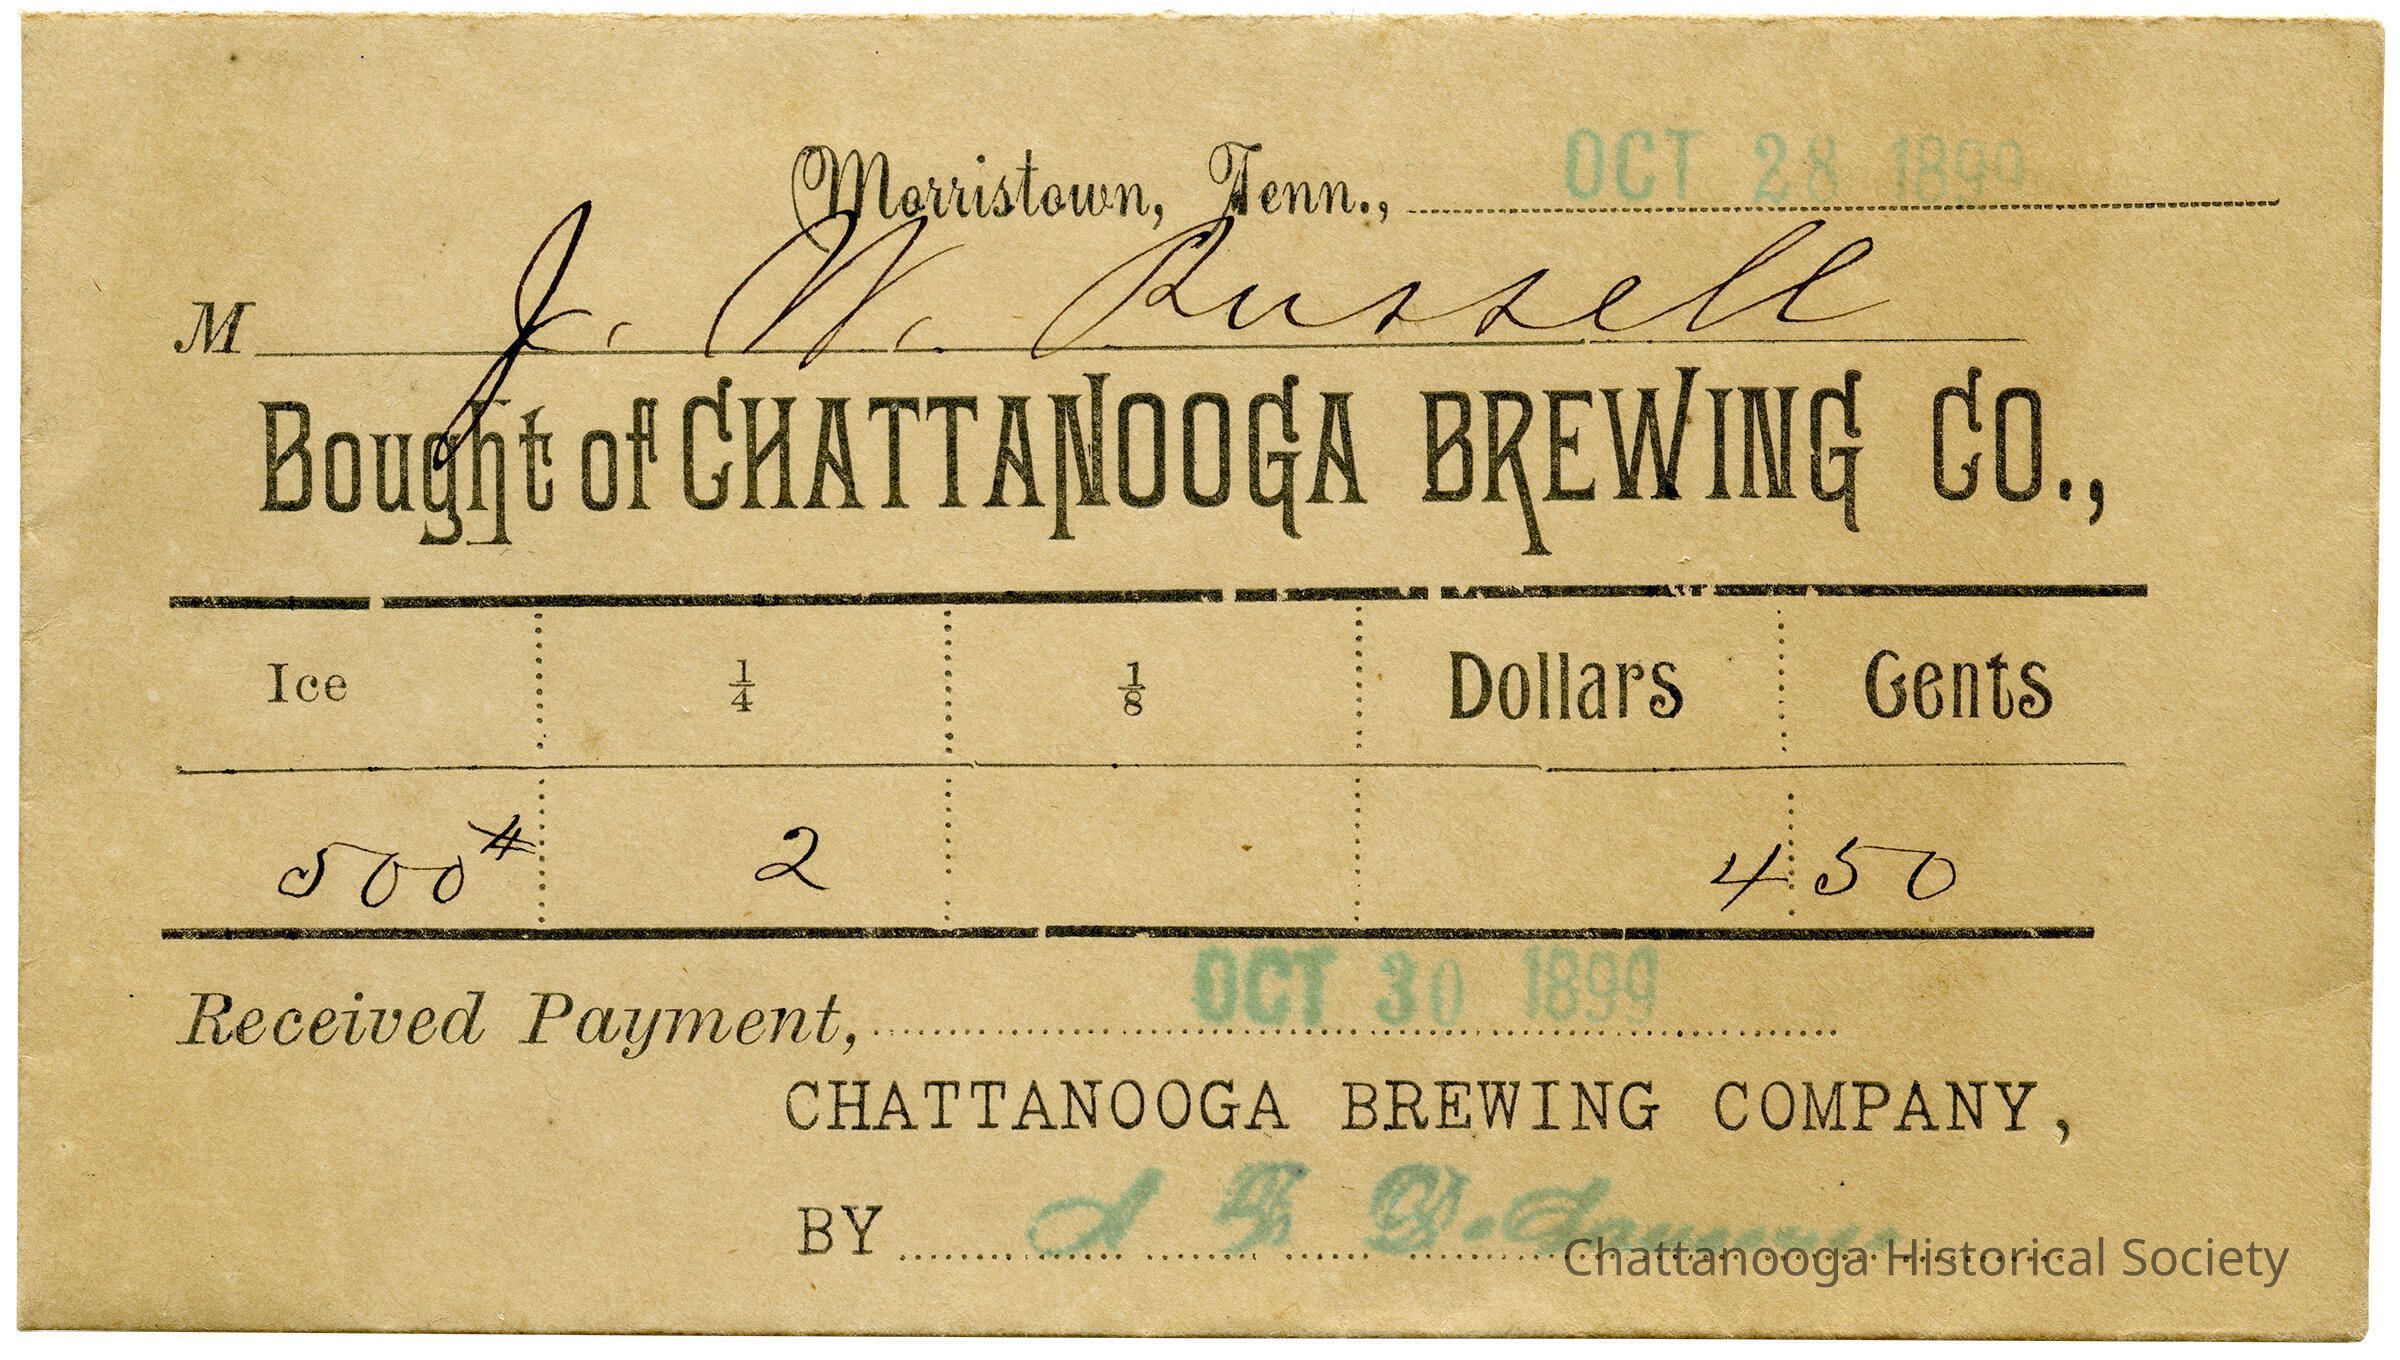 Morristown, Tenn., OCT 28 1899
M J. W. Russell
Bought of CHATTANOOGA BREWING CO.,
Ice 1/4 1/8 Dollars Cents
500# 2 4 50
Received Payment, OCT 30 1899
CHATTANOOGA BREWING COMPANY,
BY
Chattanooga Historical Society